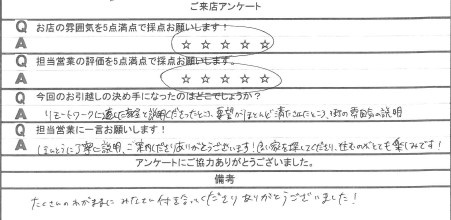 ご来店アンケート
Q お店の雰囲気を5点満点で採点お願いします！
A ☆☆☆☆☆
Q 担当営業の評価を5点満点で採点お願いします。
A ☆☆☆☆☆
Q 今回のお引越しの決め手になったのはどこでしょうか？
A リモートワークに適した物件と説明くださったところ、要望がほとんど満たされたところ、街の雰囲気の説明
Q 担当営業に一言お願いします！
A ほんとうに丁寧に説明、ご案内くださりありがとうございます！良い家を探してくださり、住むのがとても楽しみです！
アンケートにご協力ありがとうございました。
備考
たくさんのわがままに付き合ってくださりありがとうございました！